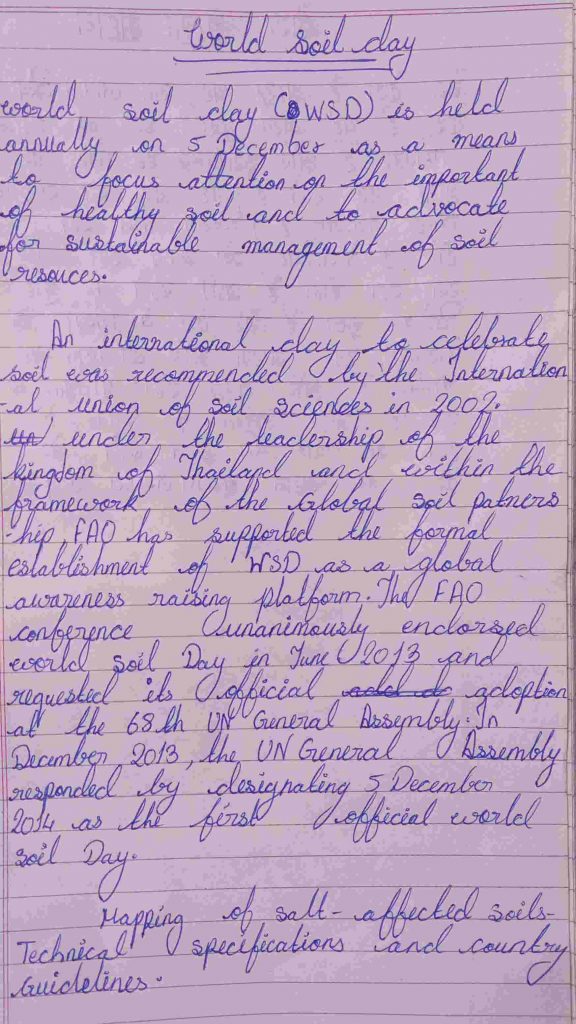 World soil day
world soil day (WSD) is held
annually on 5 December as a means
to focus attention on the important
of healthy soil and to advocate
for sustainable management of soil
resouces.
An international day to celebrate
soil was recommended by the Internation
-al union of soil sciences in 2002.
under the leadership of the
kingdom of Thailand and within the
framework of the Global soil patners
-hip, FAO has supported the formal
establishment of WSD as a global
awareness raising platform. The FAO
conference unanimously endorsed
world soil Day in June 2013 and
requested its official adoption
at the 68th UN General Assembly. In
December 2013, the UN General Assembly
responded by designating 5 December
2014 as the first official world
soil Day.
Mapping of salt-affected soils-
Technical specifications and country
Guidelines.